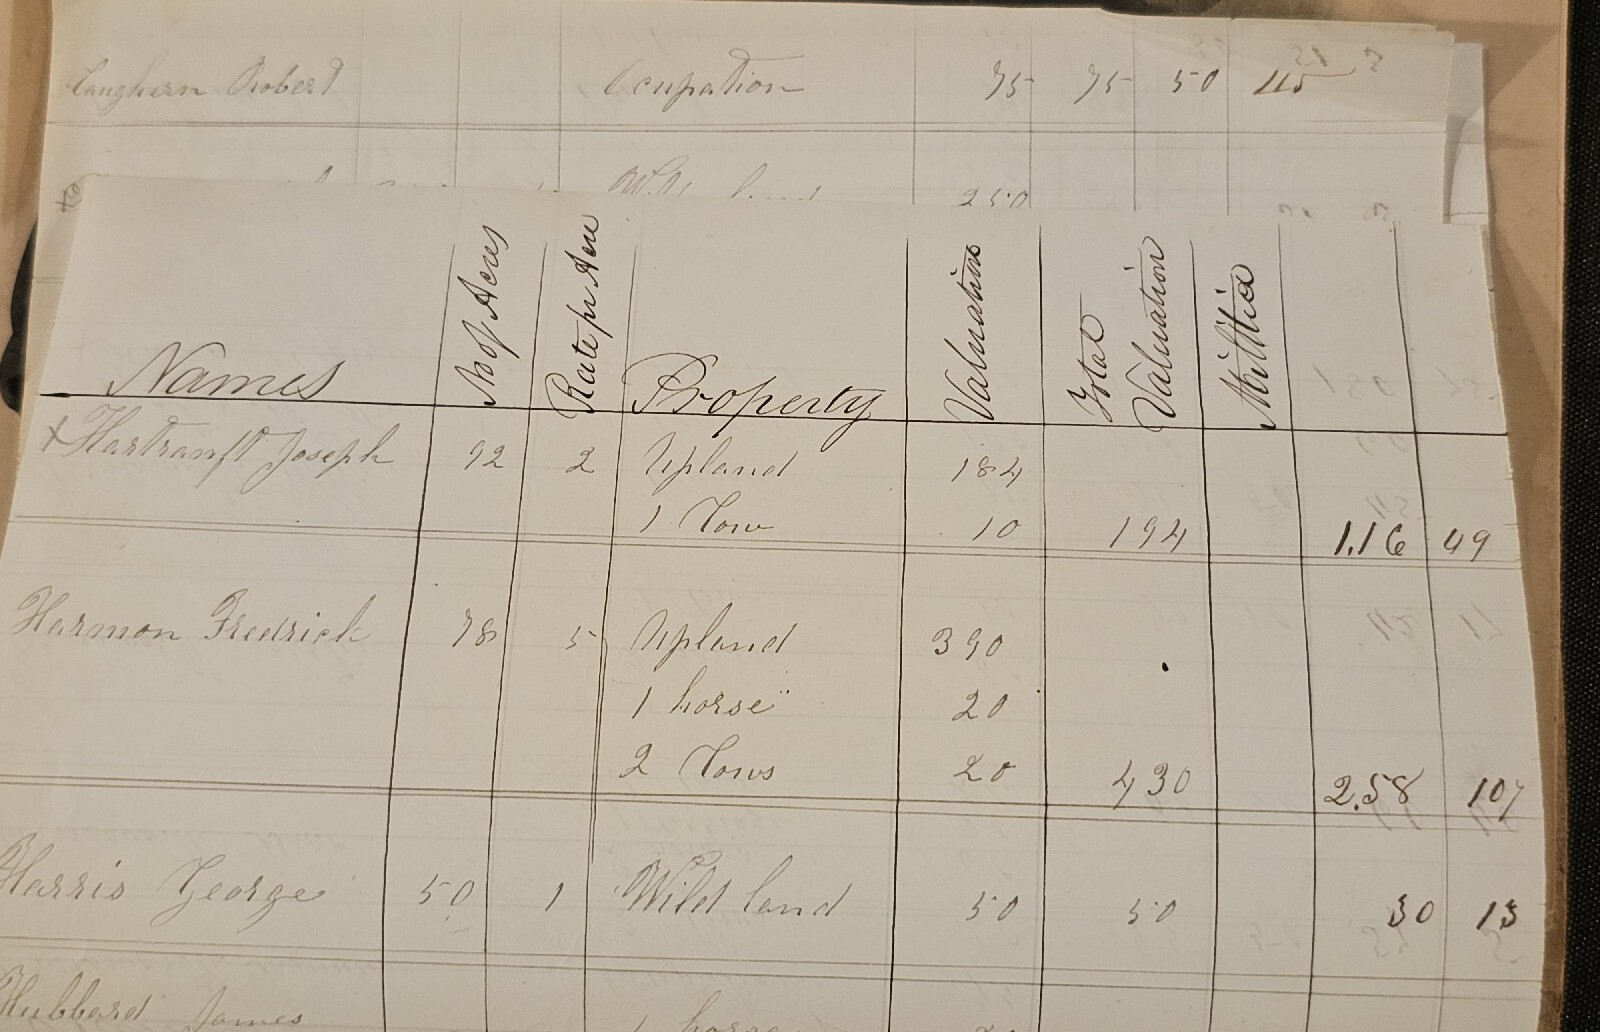 Robert Ocupation 75 75 50 45
250
Names No of Acres Rate pr Acre Property Valuation Total Valuation Militia
x Hartranft Joseph 92 2 Upland 184
1 Cow 10 194 1.16 49
Harmon Fredrick 78 5 Upland 390
1 horse 20
2 Cows 20 430 2.58 107
Harris George 50 1 Wild land 50 50 30 13
Hubbard James 1 horse